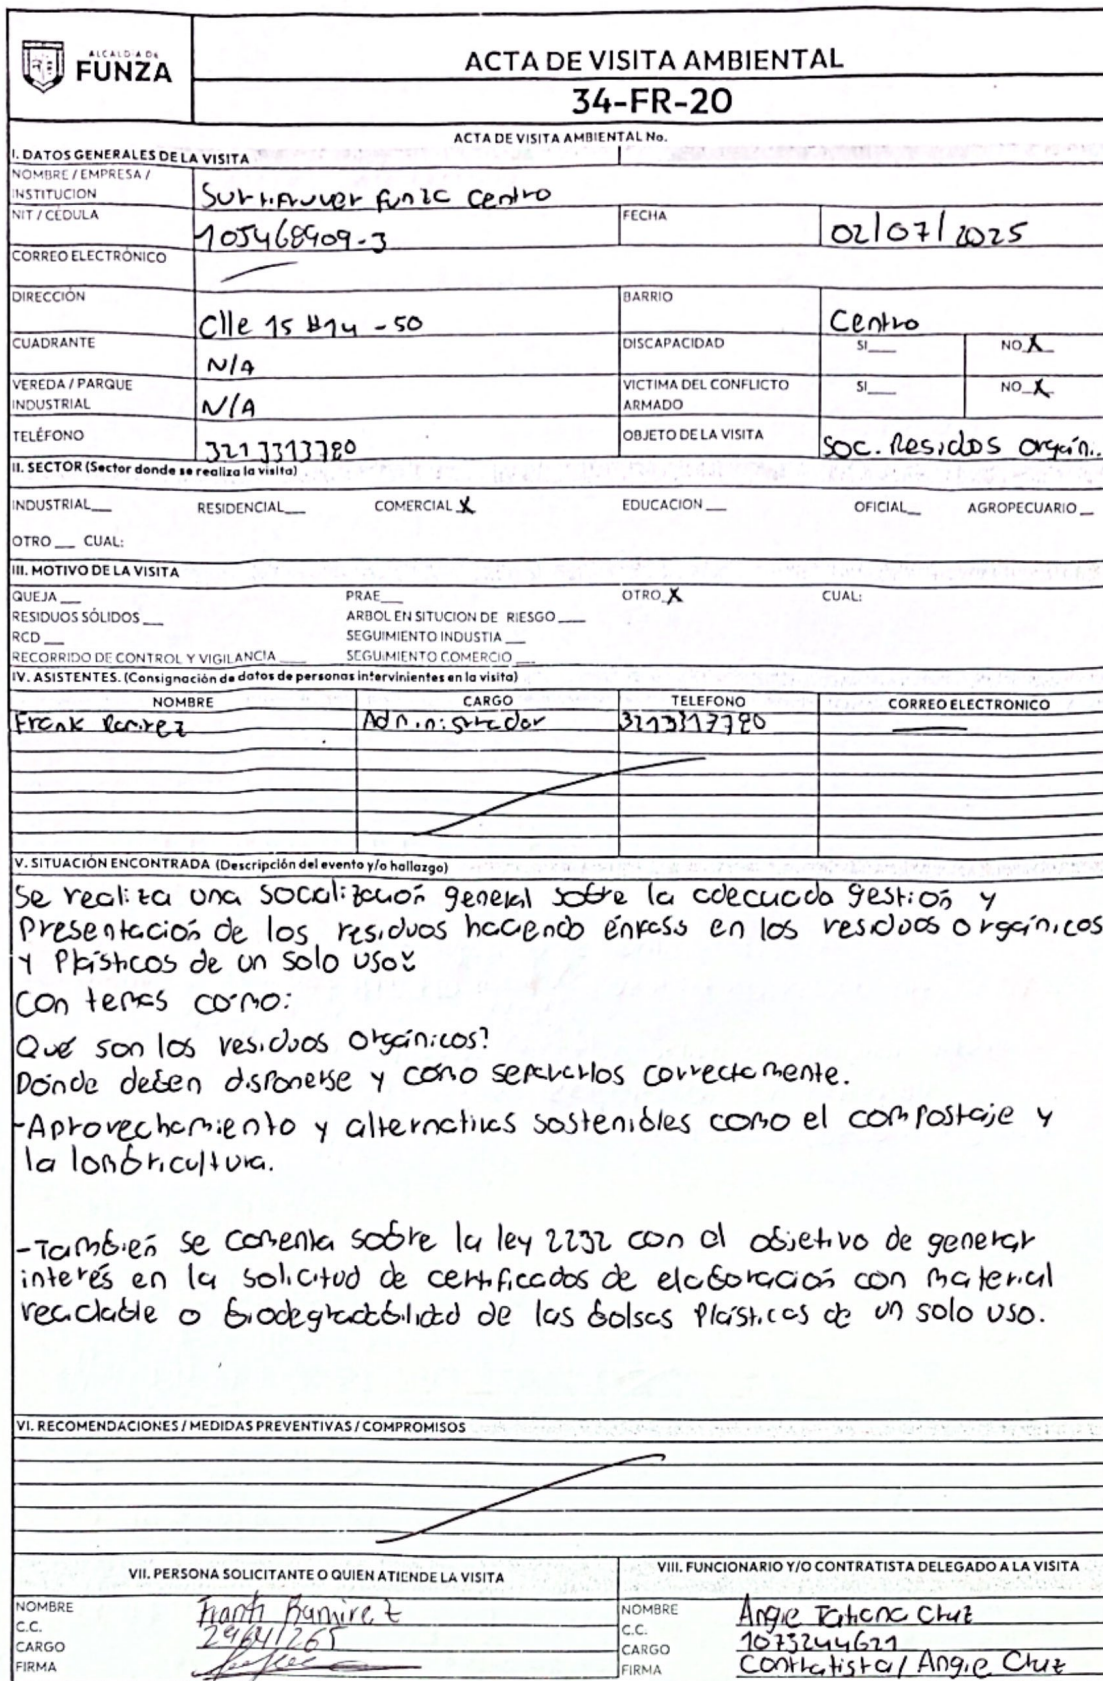 ALCALDIA DE
FUNZA
ACTA DE VISITA AMBIENTAL
34-FR-20
ACTA DE VISITA AMBIENTAL No.
I. DATOS GENERALES DE LA VISITA
NOMBRE / EMPRESA / INSTITUCION Surtifruver funza Centro
NIT / CÉDULA 105468909-3 FECHA 02/07/2025
CORREO ELECTRÓNICO
DIRECCIÓN Clle 15 #14 - 50 BARRIO Centro
CUADRANTE N/A DISCAPACIDAD SI___ NO X
VEREDA / PARQUE INDUSTRIAL N/A VICTIMA DEL CONFLICTO ARMADO SI___ NO X
TELÉFONO 3213313780 OBJETO DE LA VISITA SOC. Residos orgán..
II. SECTOR (Sector donde se realiza la visita)
INDUSTRIAL__ RESIDENCIAL__ COMERCIAL X EDUCACION __ OFICIAL__ AGROPECUARIO __
OTRO __ CUAL:
III. MOTIVO DE LA VISITA
QUEJA __ PRAE__ OTRO X CUAL:
RESIDUOS SÓLIDOS __ ARBOL EN SITUCION DE RIESGO __
RCD __ SEGUIMIENTO INDUSTIA __
RECORRIDO DE CONTROL Y VIGILANCIA __ SEGUIMIENTO COMERCIO __
IV. ASISTENTES. (Consignación de datos de personas intervinientes en la visita)
NOMBRE CARGO TELEFONO CORREO ELECTRONICO
Frank Ramirez Administrador 3213313780
V. SITUACIÓN ENCONTRADA (Descripción del evento y/o hallazgo)
Se realiza una socialización general sobre la adecuada gestión y
Presentación de los residuos haciendo énfasis en los residuos orgánicos
y Plásticos de un solo uso.
Con temas como:
Qué son los residuos orgánicos?
Dónde deben disponerse y cómo separarlos correctamente.
-Aprovechamiento y alternativas sostenibles como el compostaje y
la lombricultura.
-También se comenta sobre la ley 2232 con el objetivo de generar
interés en la solicitud de certificados de elaboración con material
reciclable o biodegradabilidad de las bolsas Plásticas de un solo uso.
VI. RECOMENDACIONES / MEDIDAS PREVENTIVAS / COMPROMISOS
VII. PERSONA SOLICITANTE O QUIEN ATIENDE LA VISITA VIII. FUNCIONARIO Y/O CONTRATISTA DELEGADO A LA VISITA
NOMBRE Frank Ramirez NOMBRE Angie Tatiana Cruz
C.C. C.C. 1073244621
CARGO CARGO Contratista / Angie Cruz
FIRMA FIRMA